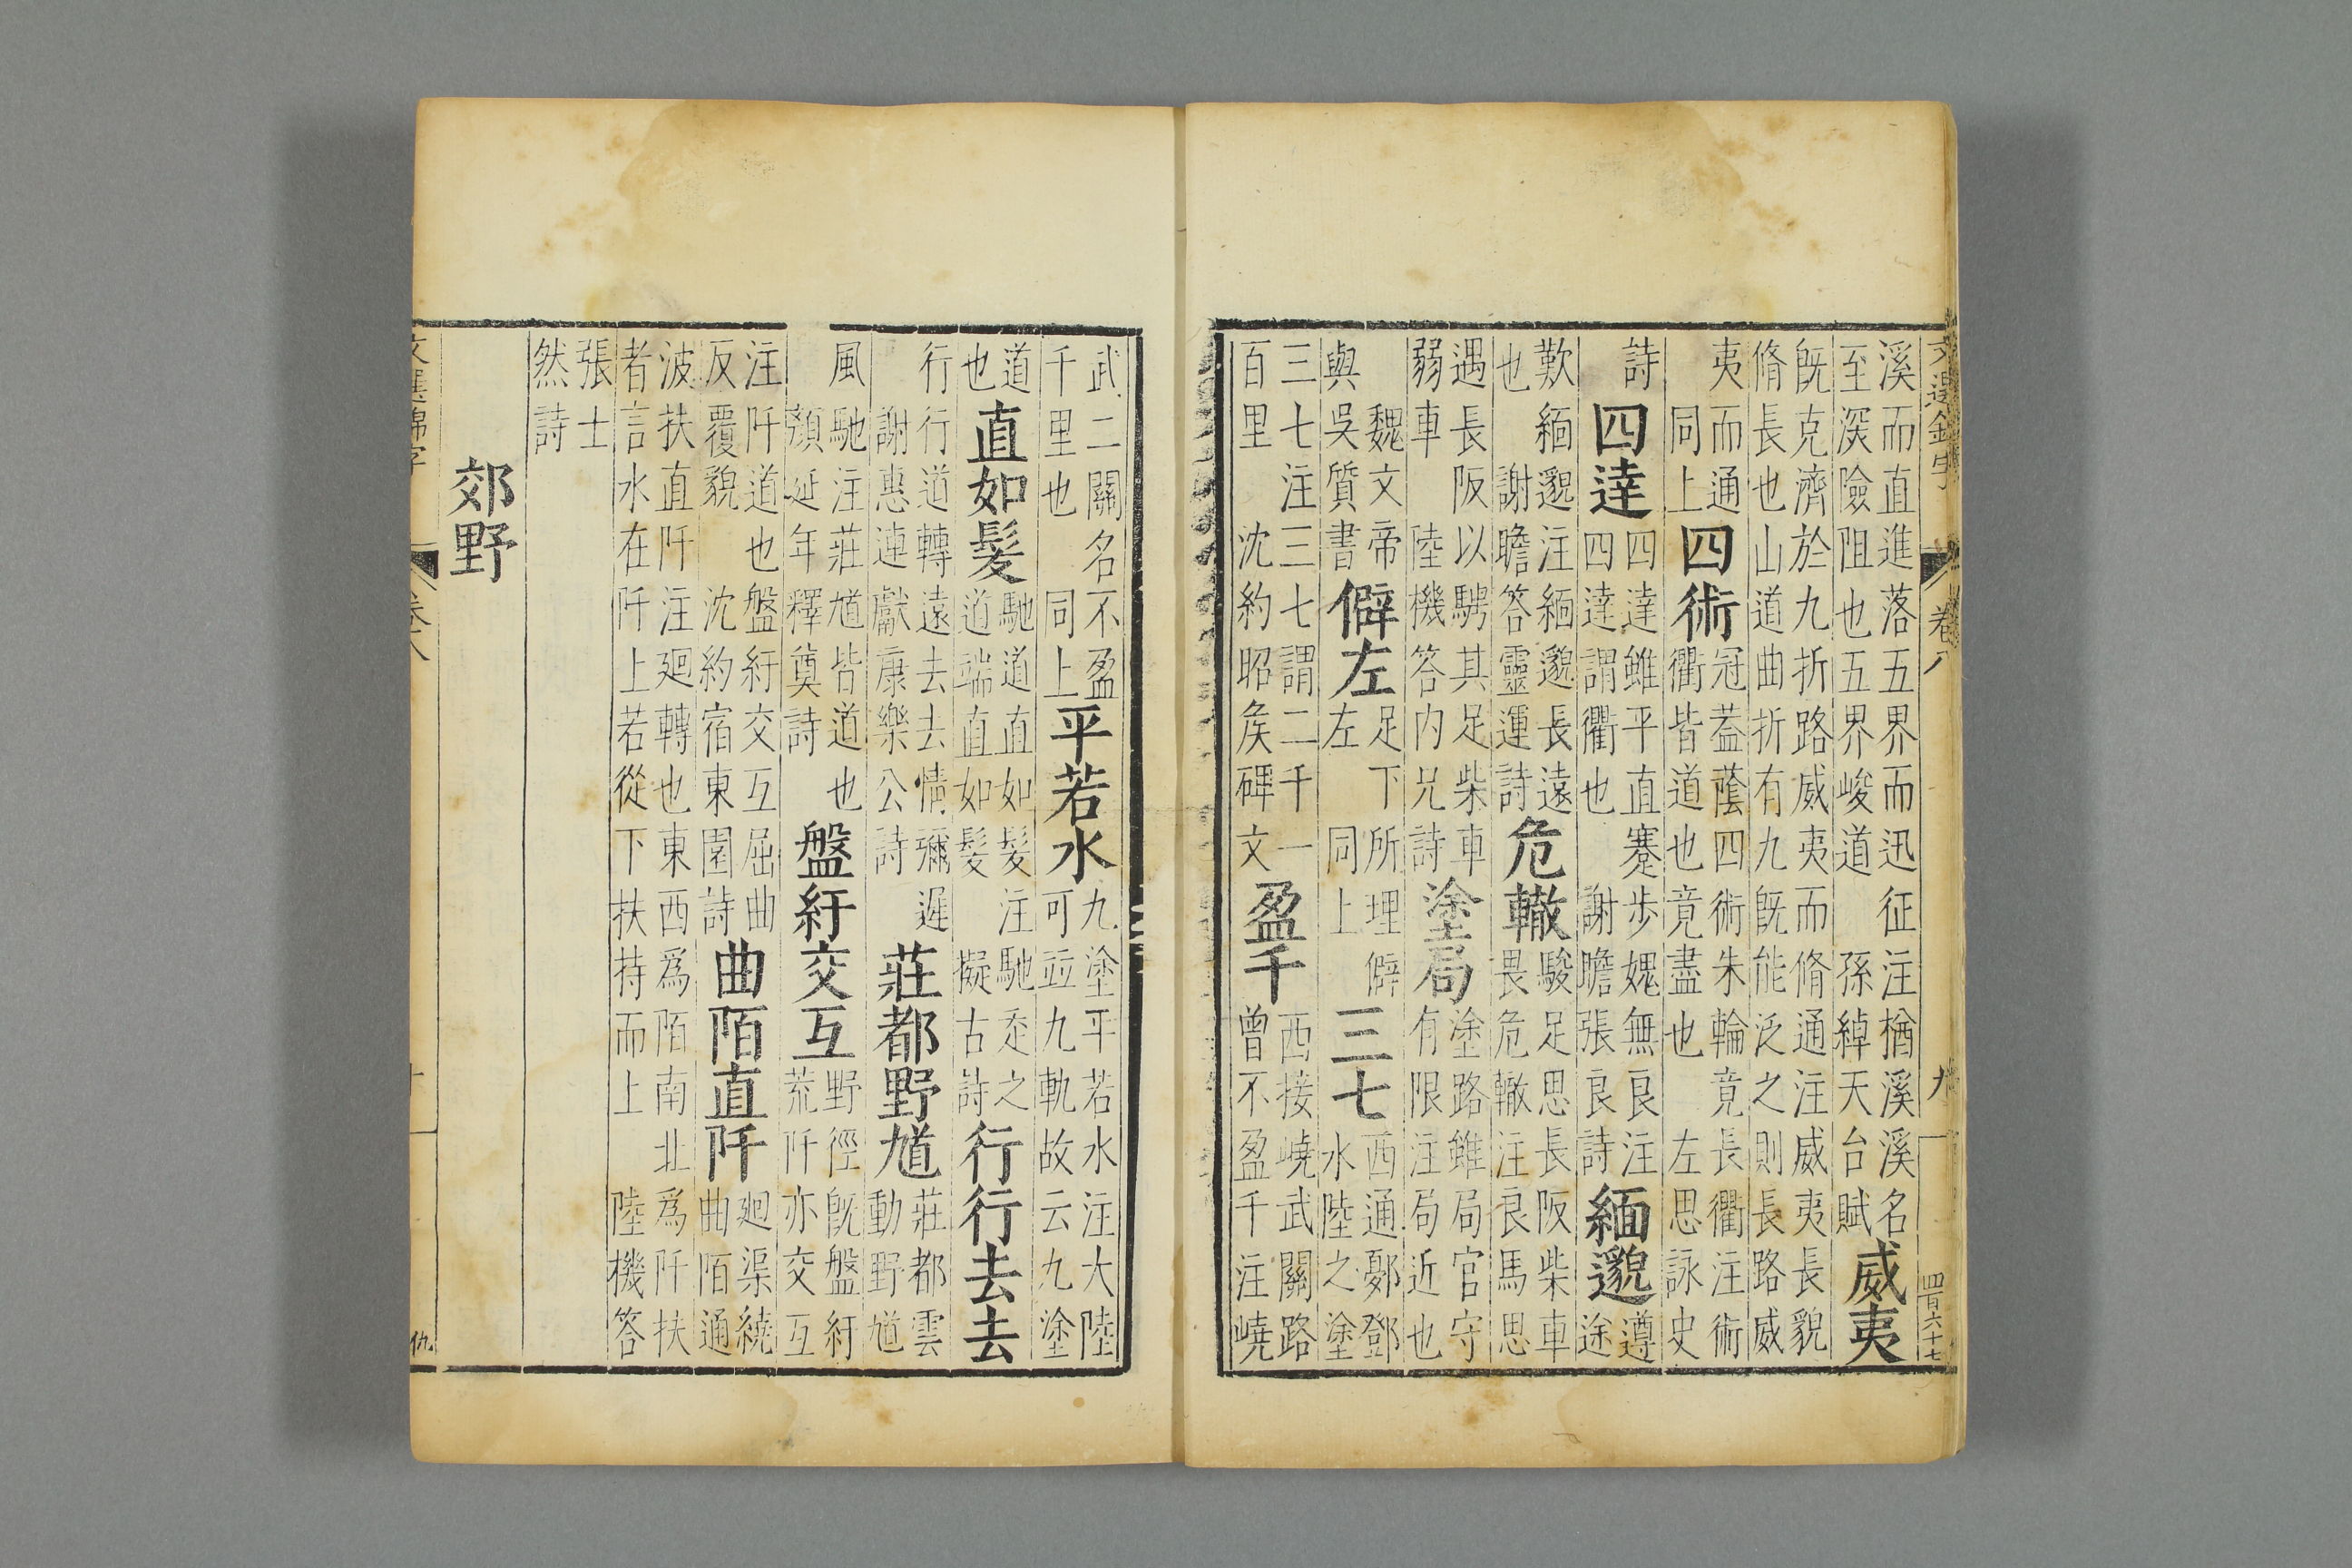 文選錦字 卷八 九 四百六十七
溪而直進落五界而迅征注楢溪溪名
至深險阻也五界峻道 孫綽天台賦
威夷
既克濟於九折路威夷而脩通注威夷長貌
脩長也山道曲折有九既能泛之則長路威
夷而通
同上
四術
冠蓋蔭四術朱輪竟長衢注術
衢皆道也竟盡也 左思詠史
詩
四達
四達雖平直蹇步媿無良注
四達謂衢也 謝瞻張良詩
緬邈
遵
途
歎緬邈注緬邈長遠
也 謝瞻答靈運詩
危轍
駿足思長阪柴車
畏危轍注良馬思
遇長阪以騁其足柴車
弱車 陸機答內兄詩
塗局
塗路雖局官守
有限注局近也
魏文帝
與吳質書
僻左
足下所埋僻
左 同上
三七
西通鄢鄧
水陸之塗
三七注三七謂二千一
百里 沈約昭矦碑文
盈千
西接嶢武關路
曾不盈千注嶢
武二關名不盈
千里也 同上
平若水
九塗平若水注大陸
可竝九軌故云九塗
道
也
直如髮
馳道直如髮注馳之
道端直如髮 擬古詩
行行去去
行行道轉遠去去情彌遲
謝惠連獻康樂公詩
莊都野馗
莊都雲
動野馗
風馳注莊馗皆道也
顏延年釋奠詩
盤紆交互
野徑既盤紆
荒阡亦交互
注阡道也盤紆交互屈曲
反覆貌 沈約宿東園詩
曲陌直阡
廻渠繞
曲陌通
波扶直阡注廻轉也東西爲陌南北爲阡扶
者言水在阡上若從下扶持而上 陸機答
張士
然詩
郊野
文選錦字 卷八 仇